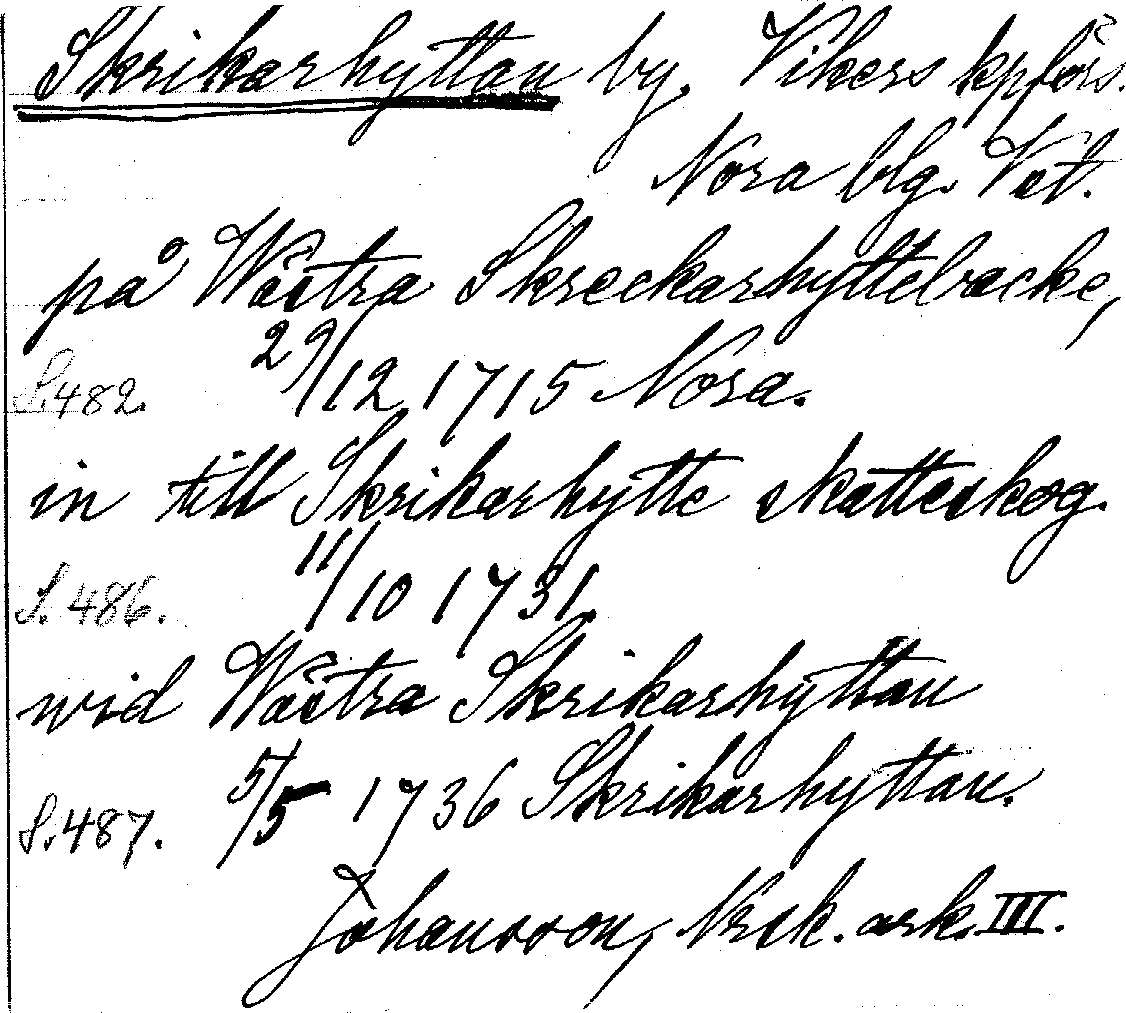 Skrikarhyttan by, Vikers kpförs.
Nora blg. Vst.
på Wästra Skreckarhyttebacke,
S.482. 29/12 1715 Nora.
in till Skrikarhytte skatteskog.
S. 486. 11/10 1731.
wid Wästra Skrikarhyttan
S.487. 5/5 1736 Skrikarhyttan.
Johansson, Nrsk. ark. III.